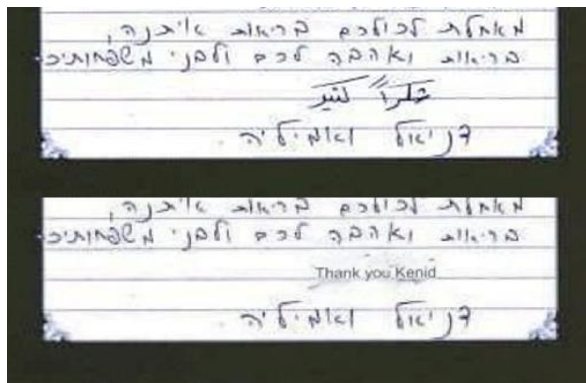 מאחלת לכולכם בריאות איתנה,
בריאות ואהבה לכם ולבני משפחותיכם
شكراً كتير
דניאל ואמיליה
מאחלת לכולכם בריאות איתנה,
בריאות ואהבה לכם ולבני משפחותיכם
Thank you Kenid
דניאל ואמיליה